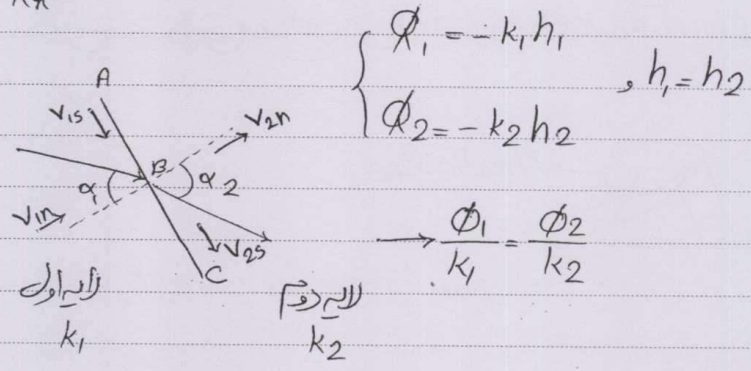 ϕ₁ = -k₁h₁
, h₁ = h₂
ϕ₂ = -k₂h₂
A
V₁s
V₂n
B
α₁
α₂
V₁n
V₂s
→ ϕ₁/k₁ = ϕ₂/k₂
C
لایه اول
لایه دوم
k₁
k₂